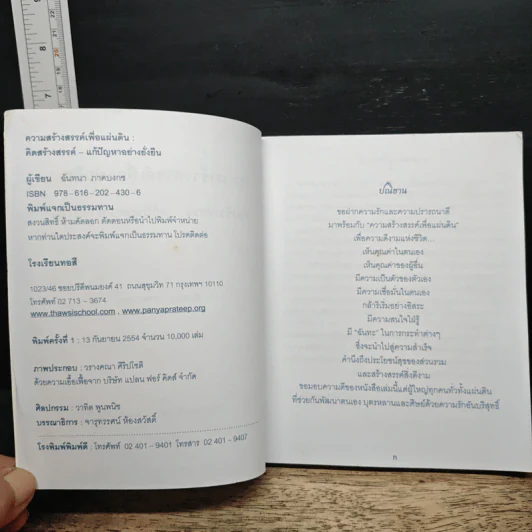 ความสร้างสรรค์เพื่อแผ่นดิน :
คิดสร้างสรรค์ – แก้ปัญหาอย่างยั่งยืน
ผู้เขียน ฉันทนา ภาคบงกช
ISBN 978 – 616 – 202 – 430 – 6
พิมพ์แจกเป็นธรรมทาน
สงวนสิทธิ์ ห้ามคัดลอก ตัดตอนหรือนำไปพิมพ์จำหน่าย
หากท่านใดประสงค์จะพิมพ์แจกเป็นธรรมทาน โปรดติดต่อ
โรงเรียนทอสี
1023/46 ซอยปรีดีพนมยงค์ 41 ถนนสุขุมวิท 71 กรุงเทพฯ 10110
โทรศัพท์ 02 713 – 3674
www.thawsischool.com, www.panyaprateep.org
พิมพ์ครั้งที่ 1 : 13 กันยายน 2554 จำนวน 10,000 เล่ม
ภาพประกอบ : วรางคณา ศิริปโชติ
ด้วยความเอื้อเฟื้อจาก บริษัท แปลน ฟอร์ คิดส์ จำกัด
ศิลปกรรม : วาทิต พูนพนิช
บรรณาธิการ : จารุทรรศน์ ห้องสวัสดิ์
โรงพิมพ์พิมพ์ดี : โทรศัพท์ 02 401 – 9401 โทรสาร 02 401 – 9407
ปณิธาน
ขอฝากความรักและความปรารถนาดี
มาพร้อมกับ "ความสร้างสรรค์เพื่อแผ่นดิน"
เพื่อความดีงามแห่งชีวิต...
เห็นคุณค่าในตนเอง
เห็นคุณค่าของผู้อื่น
มีความเป็นตัวของตัวเอง
มีความเชื่อมั่นในตนเอง
กล้าริเริ่มอย่างอิสระ
มีความสนใจใฝ่รู้
มี "ฉันทะ" ในการกระทำต่างๆ
ซึ่งจะนำไปสู่ความสำเร็จ
คำนึงถึงประโยชน์สุขของส่วนรวม
และสร้างสรรค์สิ่งดีงาม
ขอมอบความดีของหนังสือเล่มนี้แด่ผู้ใหญ่ทุกคนทั่วทั้งแผ่นดิน
ที่ช่วยกันพัฒนาตนเอง บุตรหลานและศิษย์ด้วยความรักอันบริสุทธิ์
ก